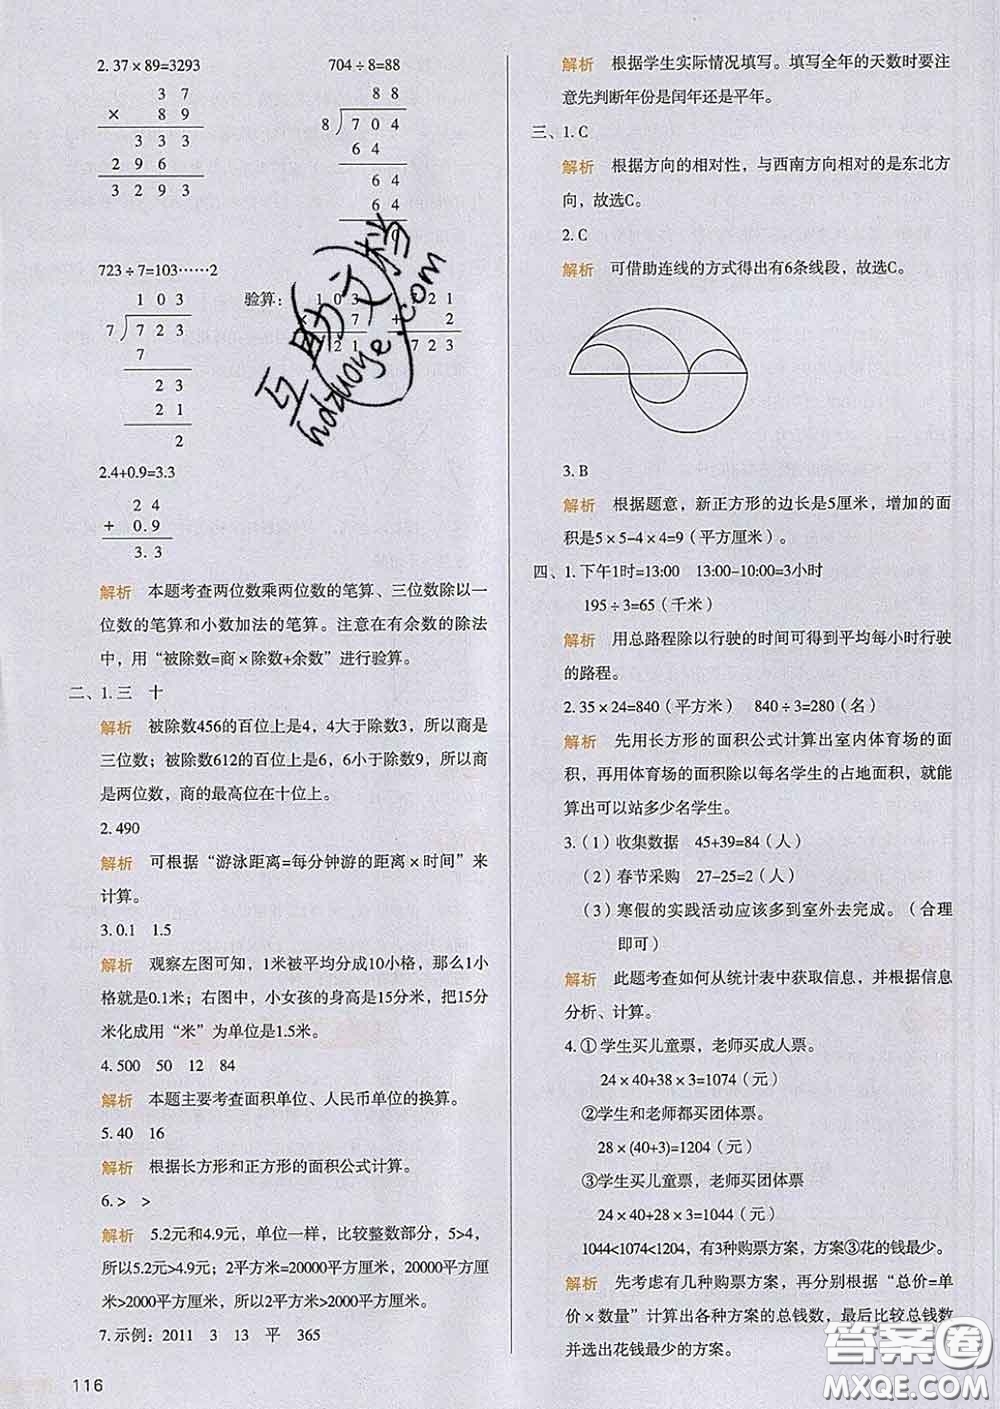 2. 37×89=3293
704÷8=88
3 7
× 8 9
3 3 3
2 9 6
3 2 9 3
8 8
8 7 0 4
6 4
6 4
6 4
0
723÷7=103……2
1 0 3
7 7 2 3
7
2 3
2 1
2
验算：
1 0 3
7
7 2 1
7 2 1
+ 2
7 2 3
2.4+0.9=3.3
2 4
+ 0.9
3.3
解析 本题考查两位数乘两位数的笔算、三位数除以一
位数的笔算和小数加法的笔算。注意在有余数的除法
中，用“被除数=商×除数+余数”进行验算。
二、1. 三 十
解析 被除数456的百位上是4，4大于除数3，所以商是
三位数；被除数612的百位上是6，6小于除数9，所以商
是两位数，商的最高位在十位上。
2. 490
解析 可根据“游泳距离=每分钟游的距离×时间”来
计算。
3. 0.1 1.5
解析 观察左图可知，1米被平均分成10小格，那么1小
格就是0.1米；右图中，小女孩的身高是15分米，把15分
米化成用“米”为单位是1.5米。
4. 500 50 12 84
解析 本题主要考查面积单位、人民币单位的换算。
5. 40 16
解析 根据长方形和正方形的面积公式计算。
6. > >
解析 5.2元和4.9元，单位一样，比较整数部分，5>4，
所以5.2元>4.9元；2平方米=20000平方厘米，20000平方
厘米>2000平方厘米，所以2平方米>2000平方厘米。
7. 示例：2011 3 13 平 365
116
解析 根据学生实际情况填写。填写全年的天数时要注
意先判断年份是闰年还是平年。
三、1. C
解析 根据方向的相对性，与西南方向相对的是东北方
向，故选C。
2. C
解析 可借助连线的方式得出有6条线段，故选C。
3. B
解析 根据题意，新正方形的边长是5厘米，增加的面
积是5×5-4×4=9（平方厘米）。
四、1. 下午1时=13:00 13:00-10:00=3小时
195÷3=65（千米）
解析 用总路程除以行驶的时间可得到平均每小时行驶
的路程。
2. 35×24=840（平方米） 840÷3=280（名）
解析 先用长方形的面积公式计算出室内体育场的面
积，再用体育场的面积除以每名学生的占地面积，就能
算出可以站多少名学生。
3.（1）收集数据 45+39=84（人）
（2）春节采购 27-25=2（人）
（3）寒假的实践活动应该多到室外去完成。（合理
即可）
解析 此题考查如何从统计表中获取信息，并根据信息
分析、计算。
4. ①学生买儿童票，老师买成人票。
24×40+38×3=1074（元）
②学生和老师都买团体票。
28×(40+3)=1204（元）
③学生买儿童票，老师买团体票
24×40+28×3=1044（元）
1044<1074<1204，有3种购票方案，方案③花的钱最少。
解析 先考虑有几种购票方案，再分别根据“总价=单
价×数量”计算出各种方案的总钱数，最后比较总钱数
并选出花钱最少的方案。
互助文档
hdzuoye.com
答案圈
MXQE.COM